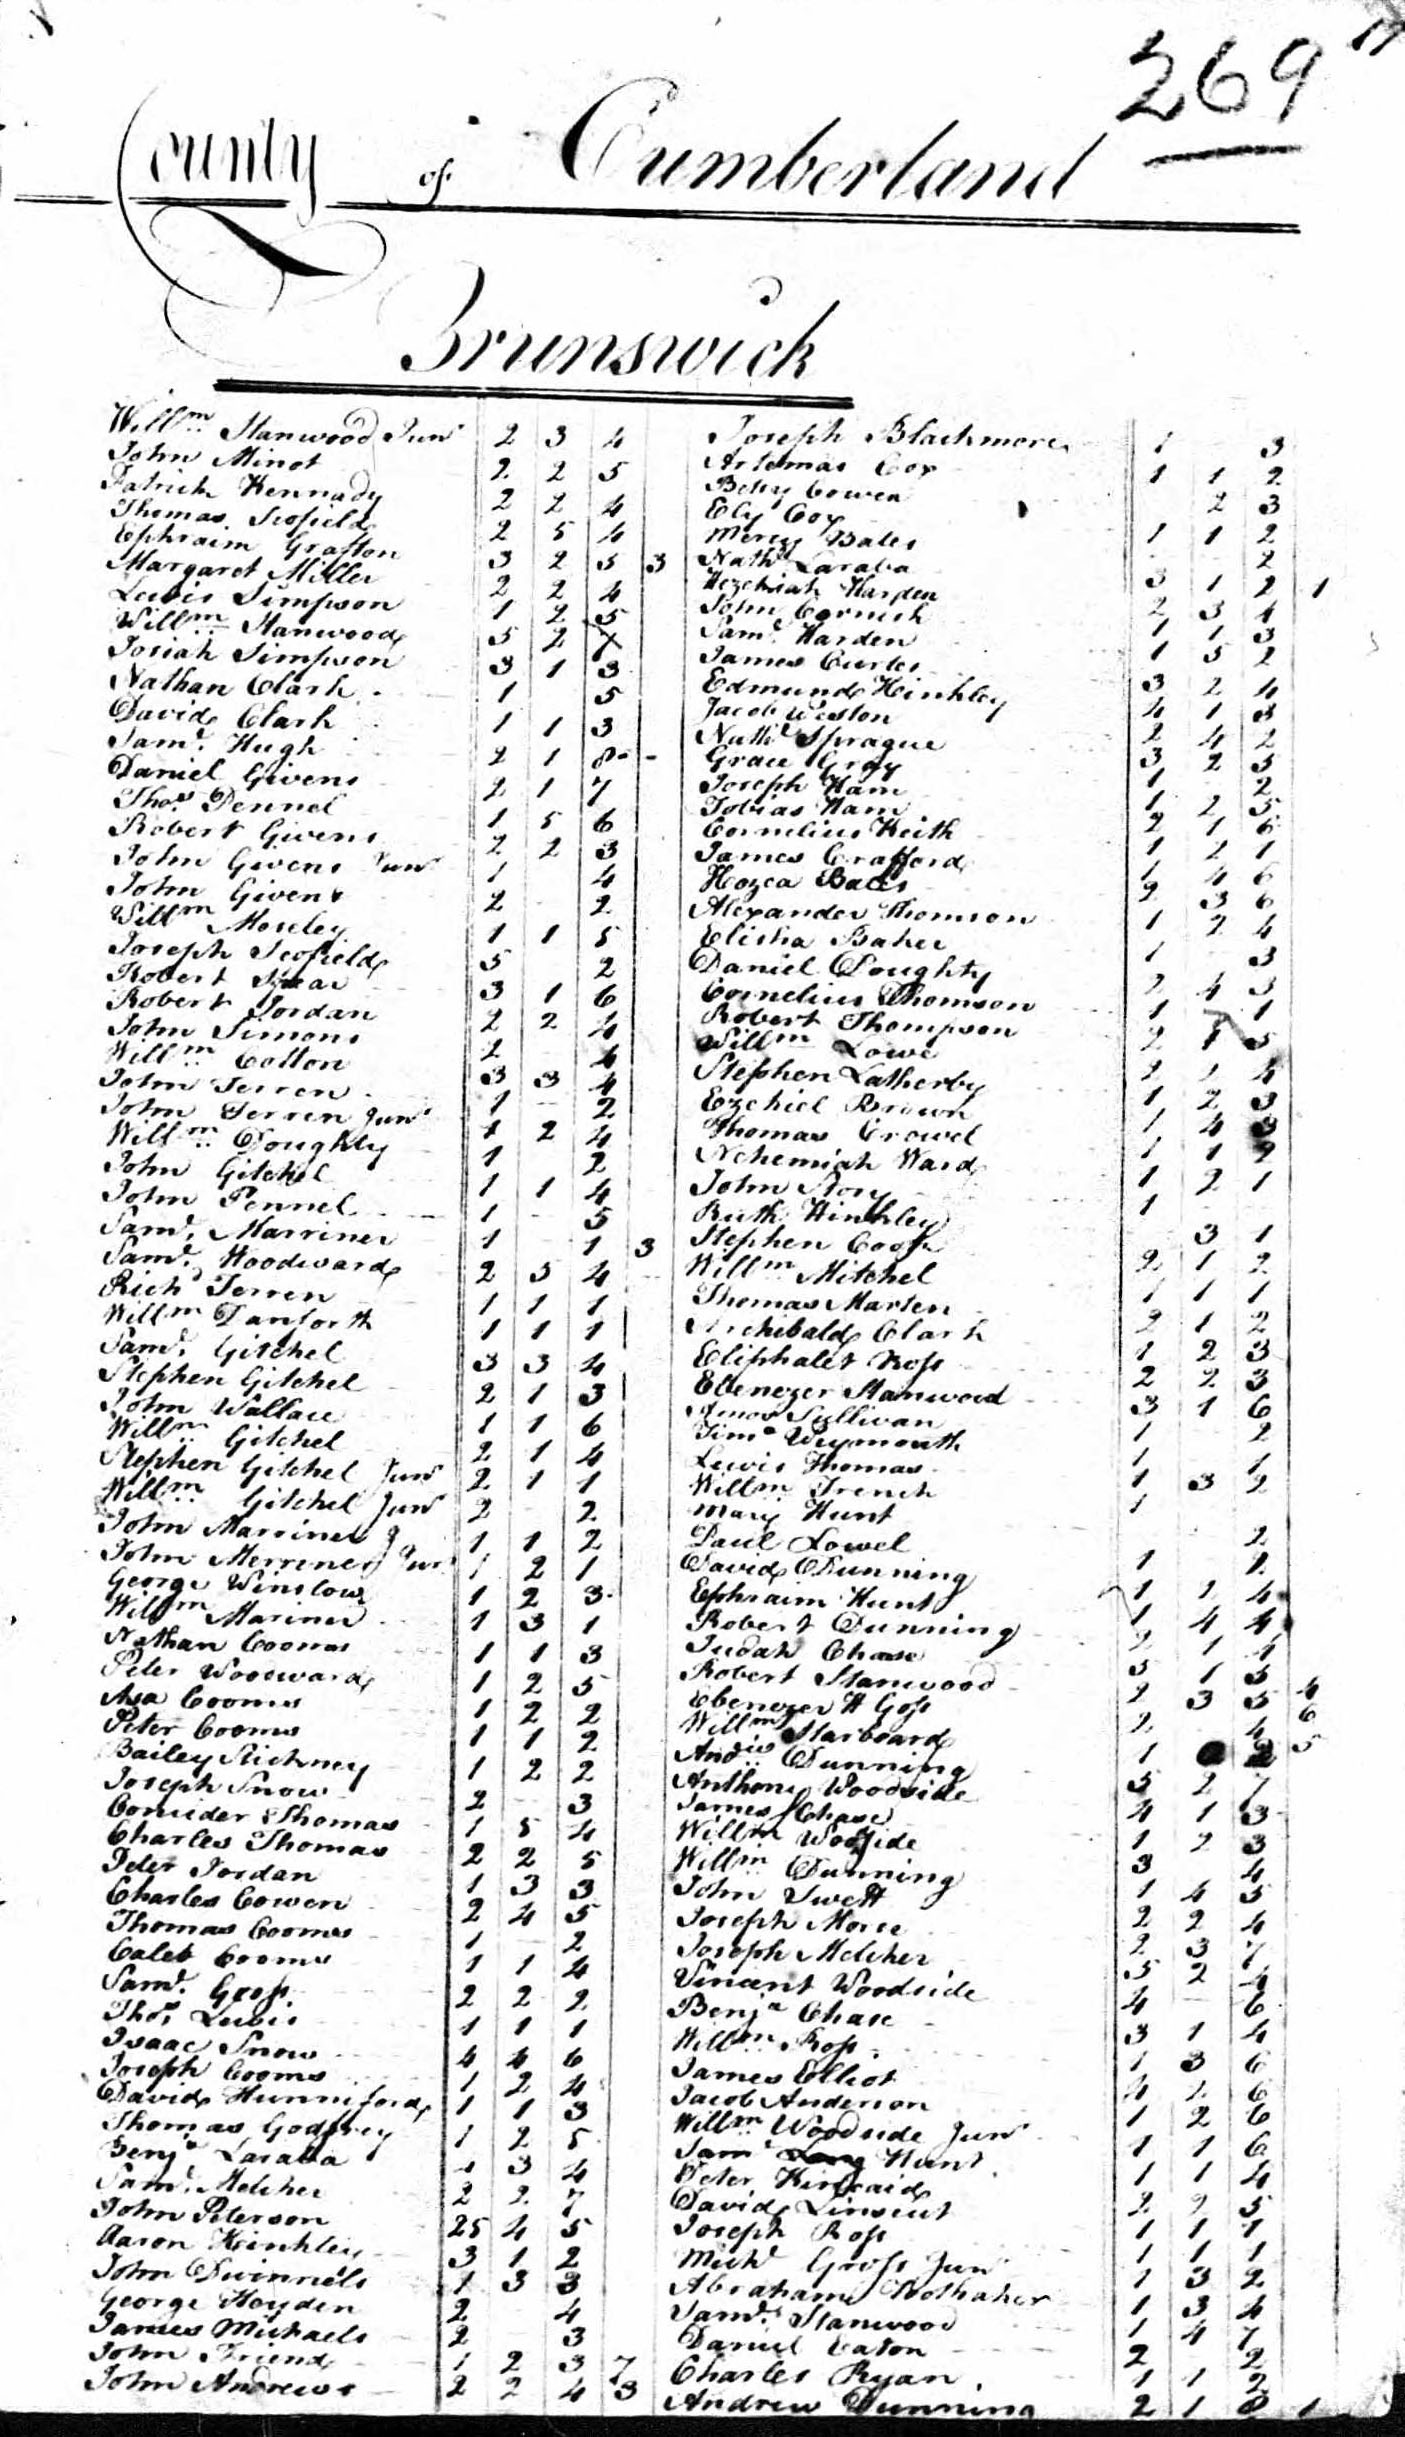 269
County of Cumberland
Brunswick
Willm Stanwood Junr 2 3 4
John Minot 2 2 5
Patrick Kennady 2 2 4
Thomas Scofield 2 5 4
Ephraim Grafton 3 2 5 3
Margaret Miller 2 2 4
Lewis Simpson 1 2 5
Willm Stanwood 5 2 7
Josiah Simpson 3 1 3
Nathan Clark 1 5
David Clark 1 1 3
Saml. Hugh 2 1 8
Daniel Givens 2 1 7
Thos. Pennel 1 5 6
Robert Givens 2 2 3
John Givens Junr 1 4
John Givens 2 2
Willm Moseley 1 1 5
Joseph Scofield 5 2
Robert Spear 3 1 6
Robert Jordan 2 2 4
John Simons 2 4
Willm Cotton 3 3 4
John Terren 1 2
John Terren Junr 1 2 4
Willm Doughty 1 2
John Gitchel 1 1 4
John Pennel 1 5
Saml. Marriner 1 1 3
Saml. Woodward 2 5 4
Richd Terren 1 1 1
Willm Danforth 1 1 1
Saml. Gitchel 3 3 4
Stephen Gitchel 2 1 3
John Wallace 1 1 6
Willm Gitchel 2 1 4
Stephen Gitchel Junr 2 1 1
Willm Gitchel Junr 2 2
John Marriner 1 1 2
John Merriner Junr 1 2 1
George Winslow 1 2 3
Willm Mariner 1 3 1
Nathan Cooms 1 1 3
Peter Woodward 1 2 5
Asa Cooms 1 2 2
Peter Cooms 1 1 2
Bailey Stickney 1 2 2
Joseph Snow 2 3
Consider Thomas 1 5 4
Charles Thomas 2 2 5
Peter Jordan 1 3 3
Charles Cowen 2 4 5
Thomas Cooms 1 2
Caleb Cooms 1 1 4
Saml. Gross 2 2 2
Thos. Lewis 1 1 1
Isaac Snow 4 4 6
Joseph Cooms 1 2 4
David Hunniford 1 1 3
Thomas Godfrey 1 2 5
Benja Laraba 1 3 4
Saml. Melcher 2 2 7
John Peterson 25 4 5
Aaron Hinkley 3 1 2
John Dwinnels 1 3 3
George Hoyden 2 4
James Michaels 2 3
John Friend 1 2 3 7
John Andrews 2 2 4 3
Joseph Blackmore 1 3
Artemas Cox 1 1 2
Betsy Cowen 2 3
Ely Cox 1 1 2
Mercy Bates 2
Nathl Laraba 3 1 2 1
Hezekiah Harden 2 3 4
John Cornish 1 1 3
Saml. Harden 1 5 2
James Curtis 3 2 4
Edmund Hinkley 4 1 3
Jacob Weston 2 4 2
Nathl Sprague 3 2 5
Grace Gray 1 2
Joseph Ham 1 2 5
Tobias Ham 2 1 6
Cornelius Keith 1 2 1
James Crafford 1 4 6
Hozea Bates 2 3 6
Alexander Thomson 1 2 4
Elisha Baker 1 3
Daniel Doughty 2 4 3
Cornelius Thomson 1 1
Robert Thompson 2 1 5
Willm Lowe 2 1 4
Stephen Latherby 1 2 3
Ezekiel Brown 1 4 3
Thomas Crowel 1 1 2
Nehemiah Ward 1 2 1
John Story 1
Ruth Hinkley 3 1
Stephen Coos 2 1 2
Willm Mitchel 1 1 1
Thomas Marten 2 1 2
Archibald Clark 1 2 3
Eliphalet Ross 2 2 3
Ebenezer Stanwood 3 1 6
Amos Sullivan 1 2
Timo Weymouth 1 1
Lewis Thomas 1 3 2
Willm French 1
Mary Hunt 2
Paul Lowel 1 1
David Dunning 1 1 4
Ephraim Hunt 1 4 4
Robert Dunning 2 1 4
Judah Chase 5 1 5
Robert Stanwood 2 3 5 4
Ebenezer H Goss 2 4 6
Willm Starboard 1 2 5
Andw Dunning 5 2 7
Anthony Woodside 4 1 3
James Chase 1 2 3
Willm Woodside 3 4
Willm Dunning 1 4 5
John Swett 2 2 4
Joseph Morse 2 3 7
Joseph Melcher 5 2 4
Vincent Woodside 4 6
Benja Chase 3 1 4
Willm Ross 1 3 6
James Elliot 4 2 6
Jacob Anderson 1 2 6
Willm Woodside Junr 1 1 6
Saml Hunt 1 1 4
Peter Kincaid 2 2 5
David Linscut 1 1 1
Joseph Ross 1 1 1
Michl Gross Junr 1 3 2
Abraham 1 3 4
Saml. Stanwood 1 4 7
Daniel Eaton 2 2
Charles Ryan 1 1 2
Andrew Dunning 2 1 8 1